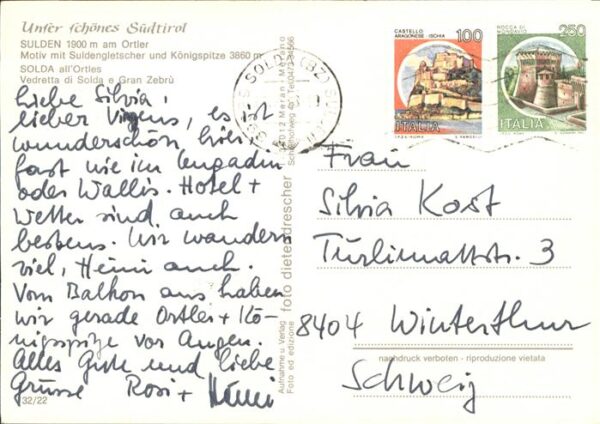 Unser schönes Südtirol
SULDEN 1900 m am Ortler
Motiv mit Suldengletscher und Königspitze 3860 m
SOLDA all'Ortles
Vedretta di Solda e Gran Zebrù
Liebe Silvia,
lieber es ist
wunderschön, hier
fast wie im Engadin
oder Wallis. Hotel +
Wetter sind auch
bestens. Wir wandern
viel, Heini auch.
Vom Balkon aus haben
wir gerade Ortler + Kö-
nigspitze vor Augen.
Alles Gute und liebe
Grüsse Rosi +
32/22
Aufnahme u. Verlag
Foto ed edizione
foto dieter drescher
Meran - Merano
SOLDA (BZ)
CASTELLO
ARAGONESE - ISCHIA
100
ITALIA
ROCCA DI
MONDAVIO
250
ITALIA
Frau
Silvia Kost
Türlimattstr. 3
8404 Winterthur
nachdruck verboten - riproduzione vietata
Schweiz